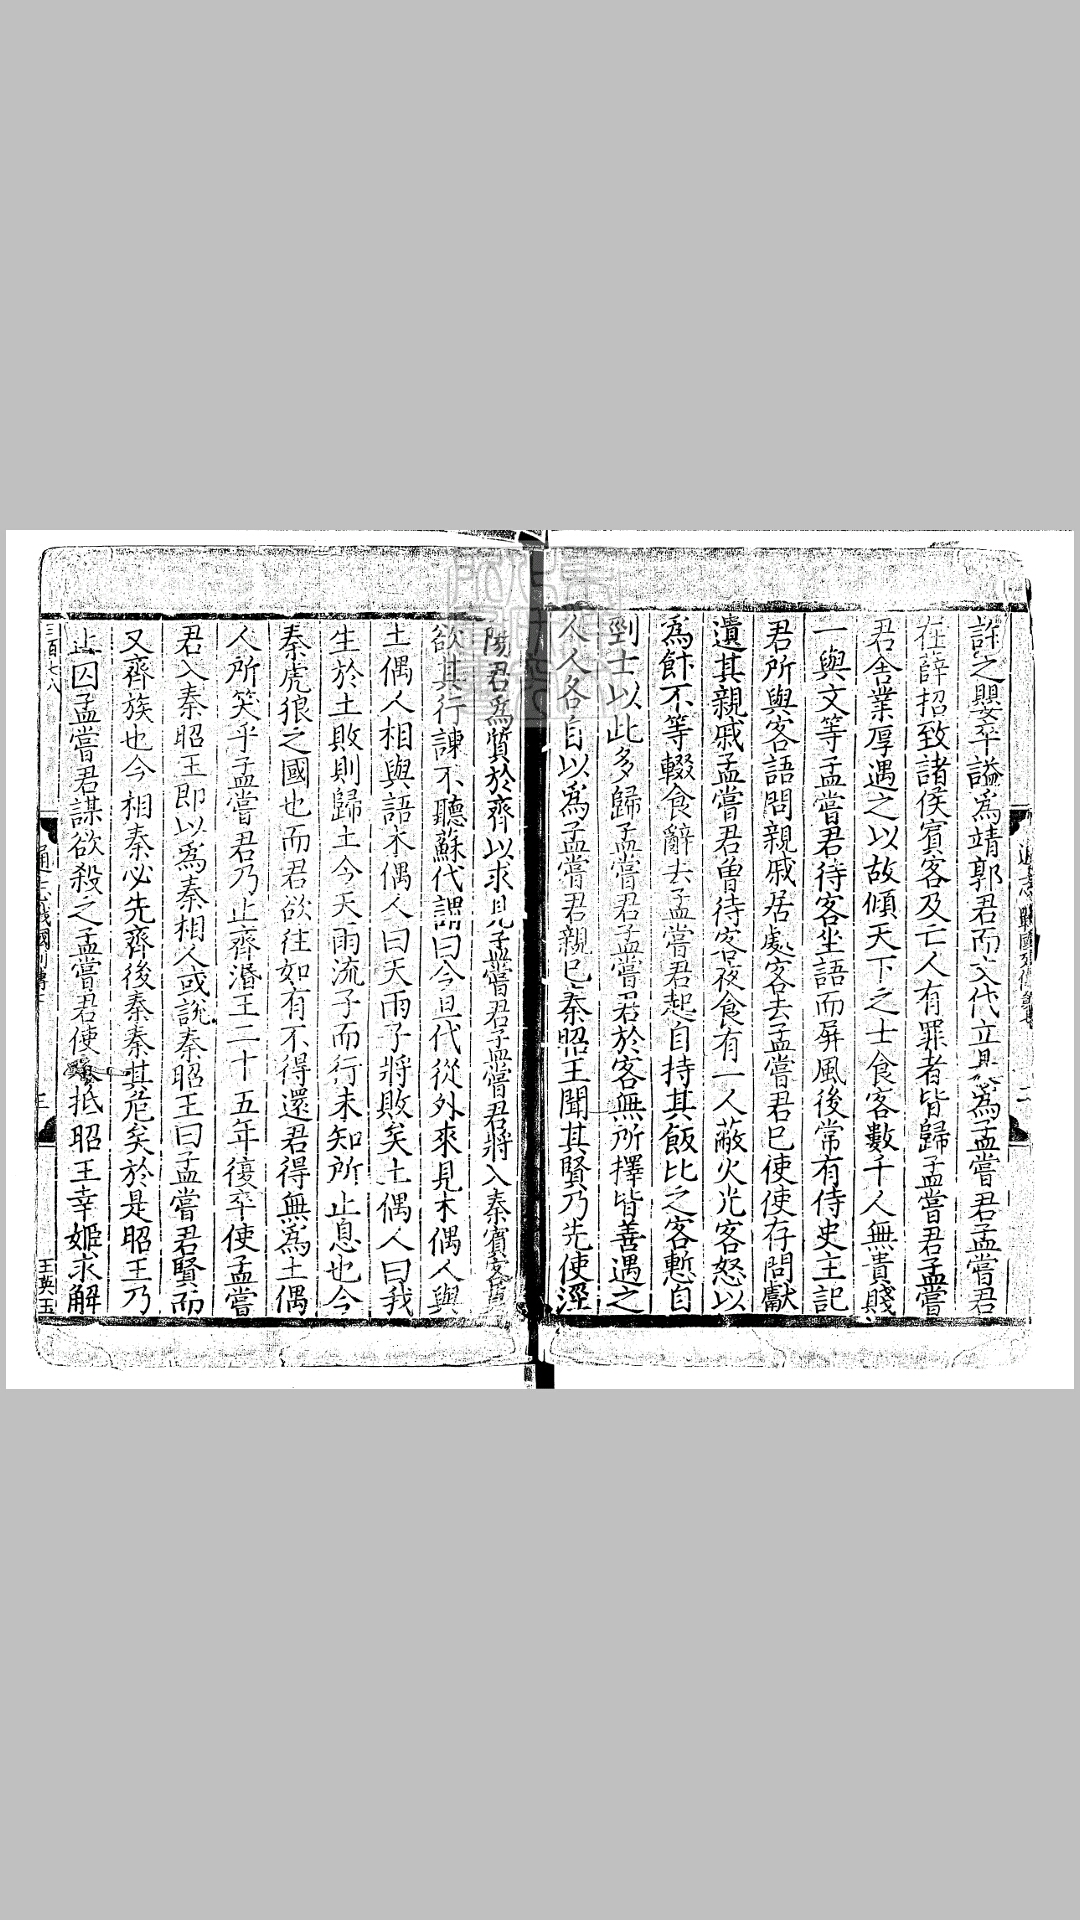 許之嬰卒諡爲靖郭君而文代立是爲孟嘗君孟嘗君
在薛招致諸侯賓客及亡人有罪者皆歸孟嘗君孟嘗
君舍業厚遇之以故傾天下之士食客數千人無貴賤
一與文等孟嘗君待客坐語而屏風後常有侍史主記
君所與客語問親戚居處客去孟嘗君已使使存問獻
遺其親戚孟嘗君曽待客夜食有一人蔽火光客怒以
爲飰不等輟食辭去孟嘗君起自持其飯比之客慙自
剄士以此多歸孟嘗君孟嘗君於客無所擇皆善遇之
人人各自以爲孟嘗君親已秦昭王聞其賢乃先使涇
陽君爲質於齊以求見孟嘗君孟嘗君將入秦賓客皆
欲其行諫不聽蘇代謂曰今旦代從外來見木偶人與
土偶人相與語木偶人曰天雨子將敗矣土偶人曰我
生於土敗則歸土今天雨流子而行未知所止息也今
秦虎狼之國也而君欲往如有不得還君得無爲土偶
人所笑乎孟嘗君乃止齊湣王二十五年復卒使孟嘗
君入秦昭王即以爲秦相人或說秦昭王曰孟嘗君賢而
又齊族也今相秦必先齊後秦秦其危矣於是昭王乃
止囚孟嘗君謀欲殺之孟嘗君使人抵昭王幸姬求解
三百七八
通志戰國列傳
三
王英玉